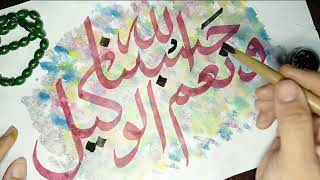 حسبنا الله
ونعم الوكيل